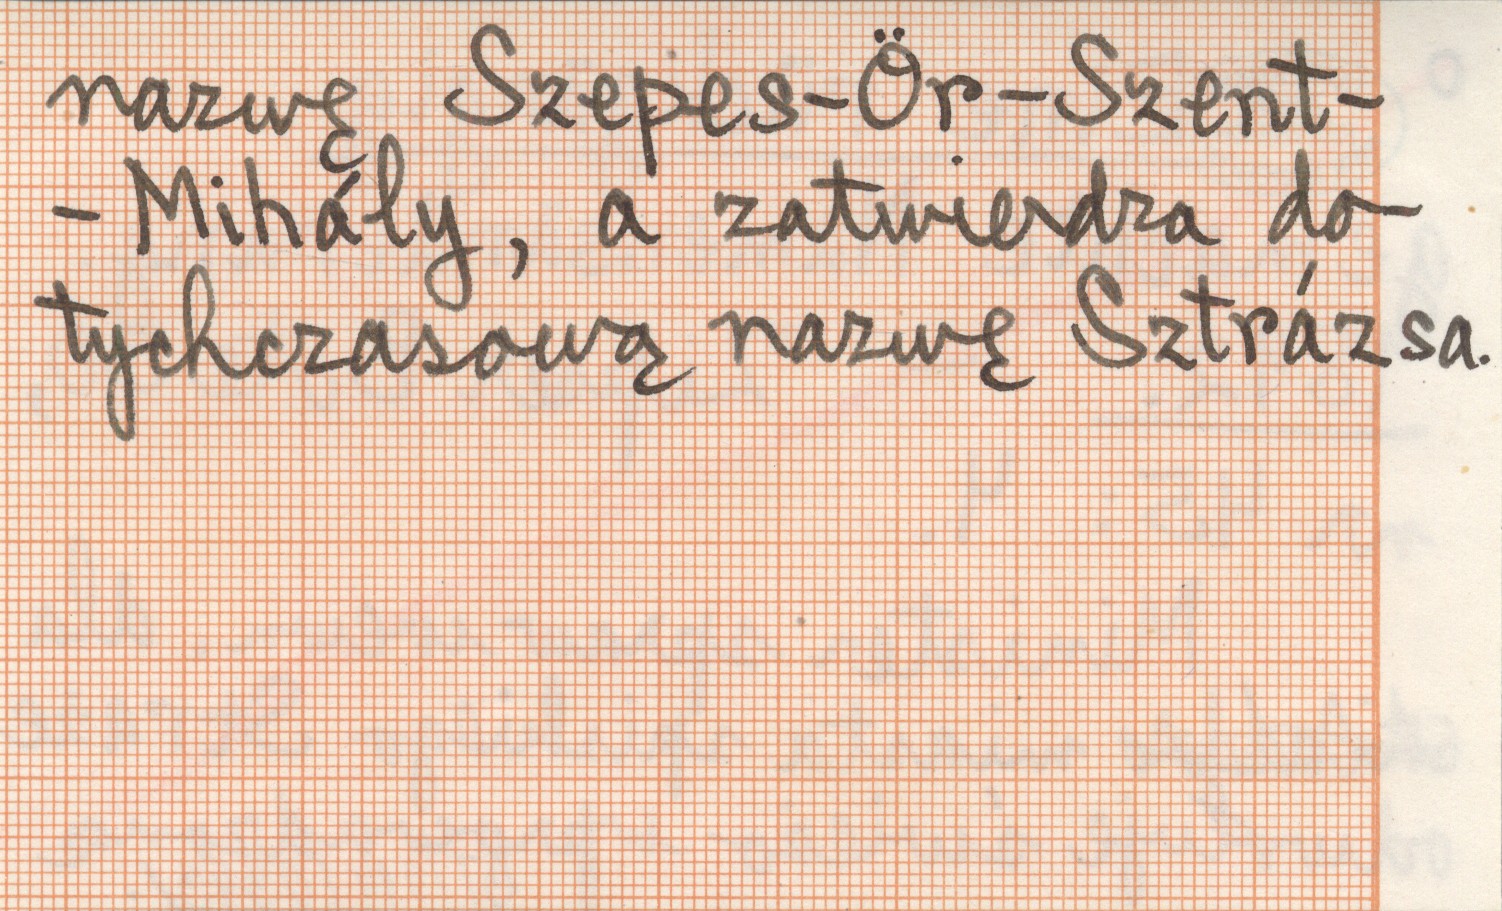 nazwę Szepes-Ör-Szent-
-Mihály, a zatwierdza do-
tychczasową nazwę Sztrázsa.